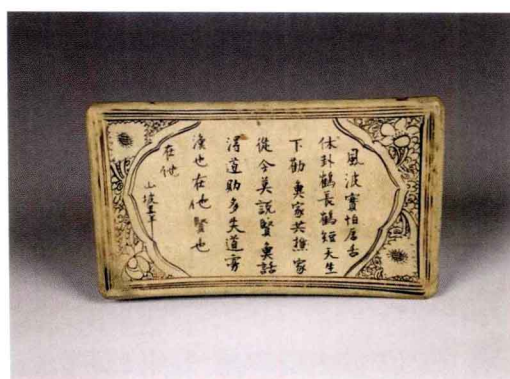 風波實怕唇舌
休卦鶴長鶴短天生
下勸魚家共樵家
從今莫說賢魚話
得道助多失道寡
漁也在他賢也
在他
山坡羊